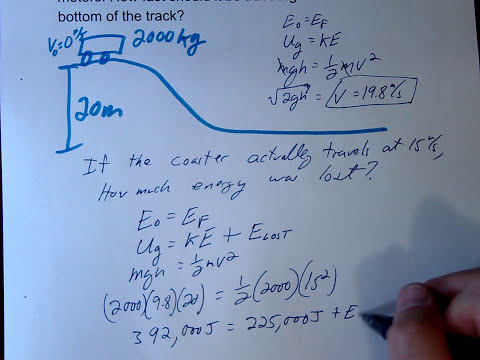 bottom of the track?
V₀=0 m/s
2000kg
20m
E₀=E_F
Ug=KE
mgh=½mv²
√2gh = V=19.8 m/s
If the coaster actually travels at 15 m/s,
How much energy was lost?
E₀=E_F
Ug=KE+E_LOST
mgh=½mv²
(2000)(9.8)(20)=½(2000)(15²)
392,000J=225,000J+E